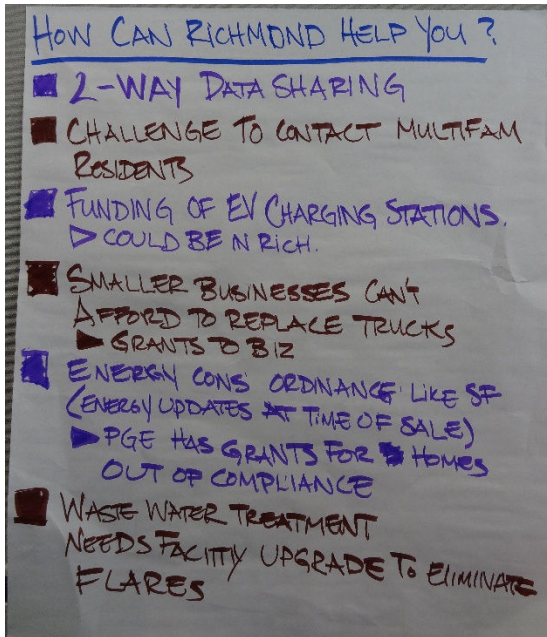 HOW CAN RICHMOND HELP YOU?
2-WAY DATA SHARING
CHALLENGE TO CONTACT MULTIFAM
RESIDENTS
FUNDING OF EV CHARGING STATIONS.
▷ COULD BE N RICH.
SMALLER BUSINESSES CAN'T
AFFORD TO REPLACE TRUCKS
▶ GRANTS TO BIZ
ENERGY CONS ORDINANCE LIKE SF
(ENERGY UPDATES AT TIME OF SALE)
▶ PGE HAS GRANTS FOR HOMES
OUT OF COMPLIANCE
WASTE WATER TREATMENT
NEEDS FACITIY UPGRADE TO ELIMINATE
FLARES